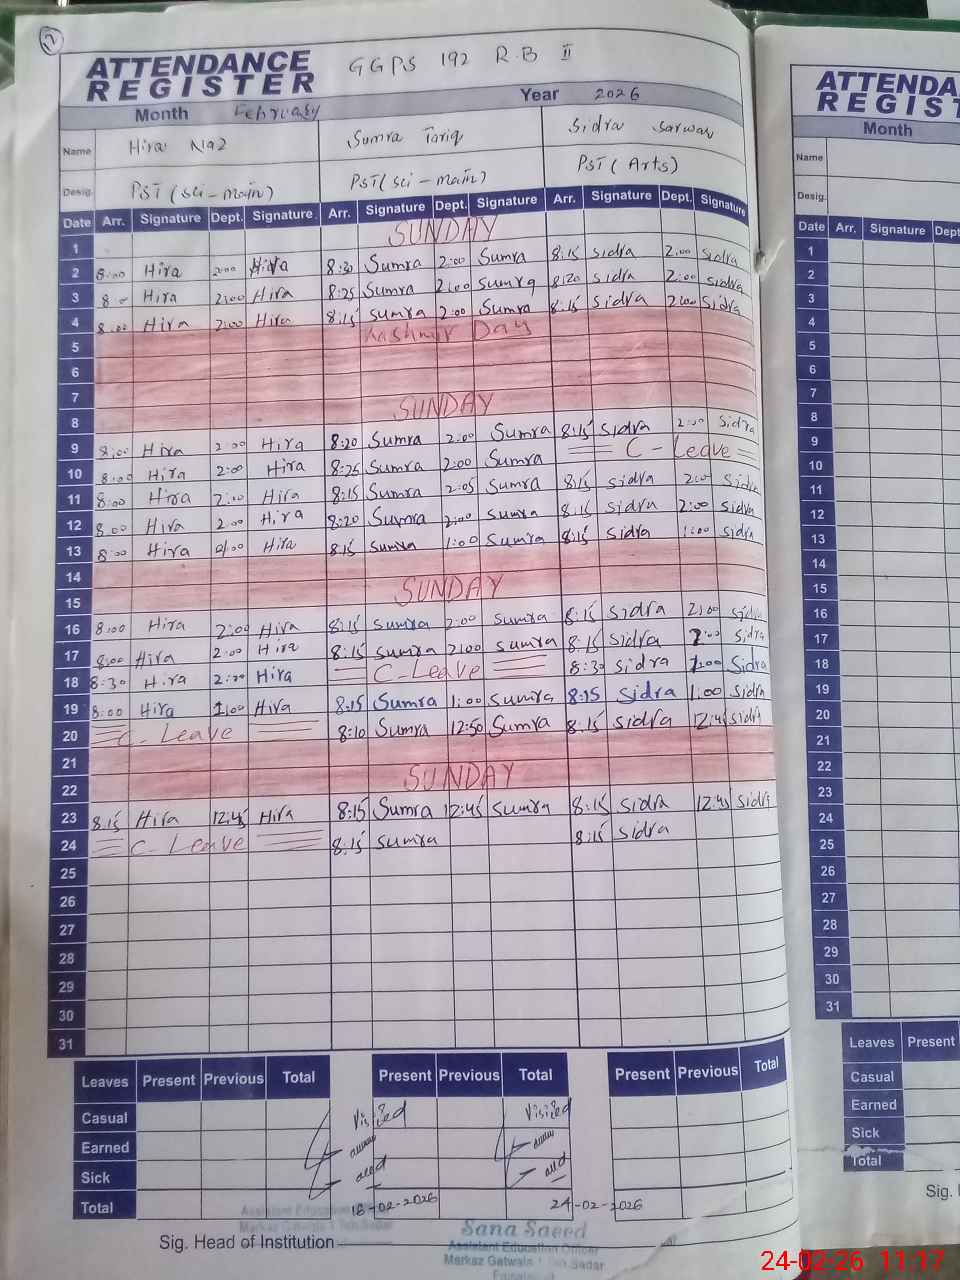 12
ATTENDANCE REGISTER GGPS 192 R.B II
Month February Year 2026
Name Hira Naz Sumra Tariq Sidra Sarwar
Desig. PST (Sci-main) PST (Sci-main) PST (Arts)
Date Arr. Signature Dept. Signature Arr. Signature Dept. Signature Arr. Signature Dept. Signature
1 SUNDAY
2 8:00 Hira 2:00 Hira 8:20 Sumra 2:00 Sumra 8:15 Sidra 2:00 Sidra
3 8:0 Hira 2:00 Hira 8:25 Sumra 2:00 Sumra 8:20 Sidra 2:00 Sidra
4 8:00 Hira 2:00 Hira 8:15 Sumra 2:00 Sumra 8:15 Sidra 2:00 Sidra
5 Kashmir Day
6
7
8 SUNDAY
9 8:00 Hira 2:00 Hira 8:20 Sumra 2:00 Sumra 8:15 Sidra 2:00 Sidra
10 8:00 Hira 2:00 Hira 8:25 Sumra 2:00 Sumra C-Leave
11 8:00 Hira 2:00 Hira 8:15 Sumra 2:05 Sumra 8:15 Sidra 2:00 Sidra
12 8:00 Hira 2:00 Hira 8:20 Sumra 2:00 Sumra 8:15 Sidra 2:00 Sidra
13 8:00 Hira Hira 8:15 Sumra 1:00 Sumra 8:15 Sidra 1:00 Sidra
14
15 SUNDAY
16 8:00 Hira 2:00 Hira 8:15 Sumra 2:00 Sumra 8:15 Sidra 2:00 Sidra
17 8:00 Hira 2:00 Hira 8:15 Sumra 2:00 Sumra 8:15 Sidra 2:00 Sidra
18 8:30 Hira 2:00 Hira C-Leave 8:30 Sidra Sidra
19 8:00 Hira 1:00 Hira 8:15 Sumra 1:00 Sumra 8:15 Sidra 1:00 Sidra
20 C-Leave 8:10 Sumra 12:50 Sumra 8:15 Sidra 12:45 Sidra
21
22 SUNDAY
23 8:15 Hira 12:45 Hira 8:15 Sumra 12:45 Sumra 8:15 Sidra 12:45 Sidra
24 C-Leave 8:15 Sumra 8:15 Sidra
25
26
27
28
29
30
31
Leaves Present Previous Total Present Previous Total Present Previous Total
Casual Visited Visited
Earned
Sick and and
Total 18-02-2026 24-02-2026
Sig. Head of Institution
Sana Saeed
Assistant Education Officer
Markaz Gatwala
ATTENDA
REGIST
Month
Name
Desig.
Date Arr. Signature Dept
1
2
3
4
5
6
7
8
9
10
11
12
13
14
15
16
17
18
19
20
21
22
23
24
25
26
27
28
29
30
31
Leaves Present
Casual
Earned
Sick
Total
Sig.
24-02-26 11:17